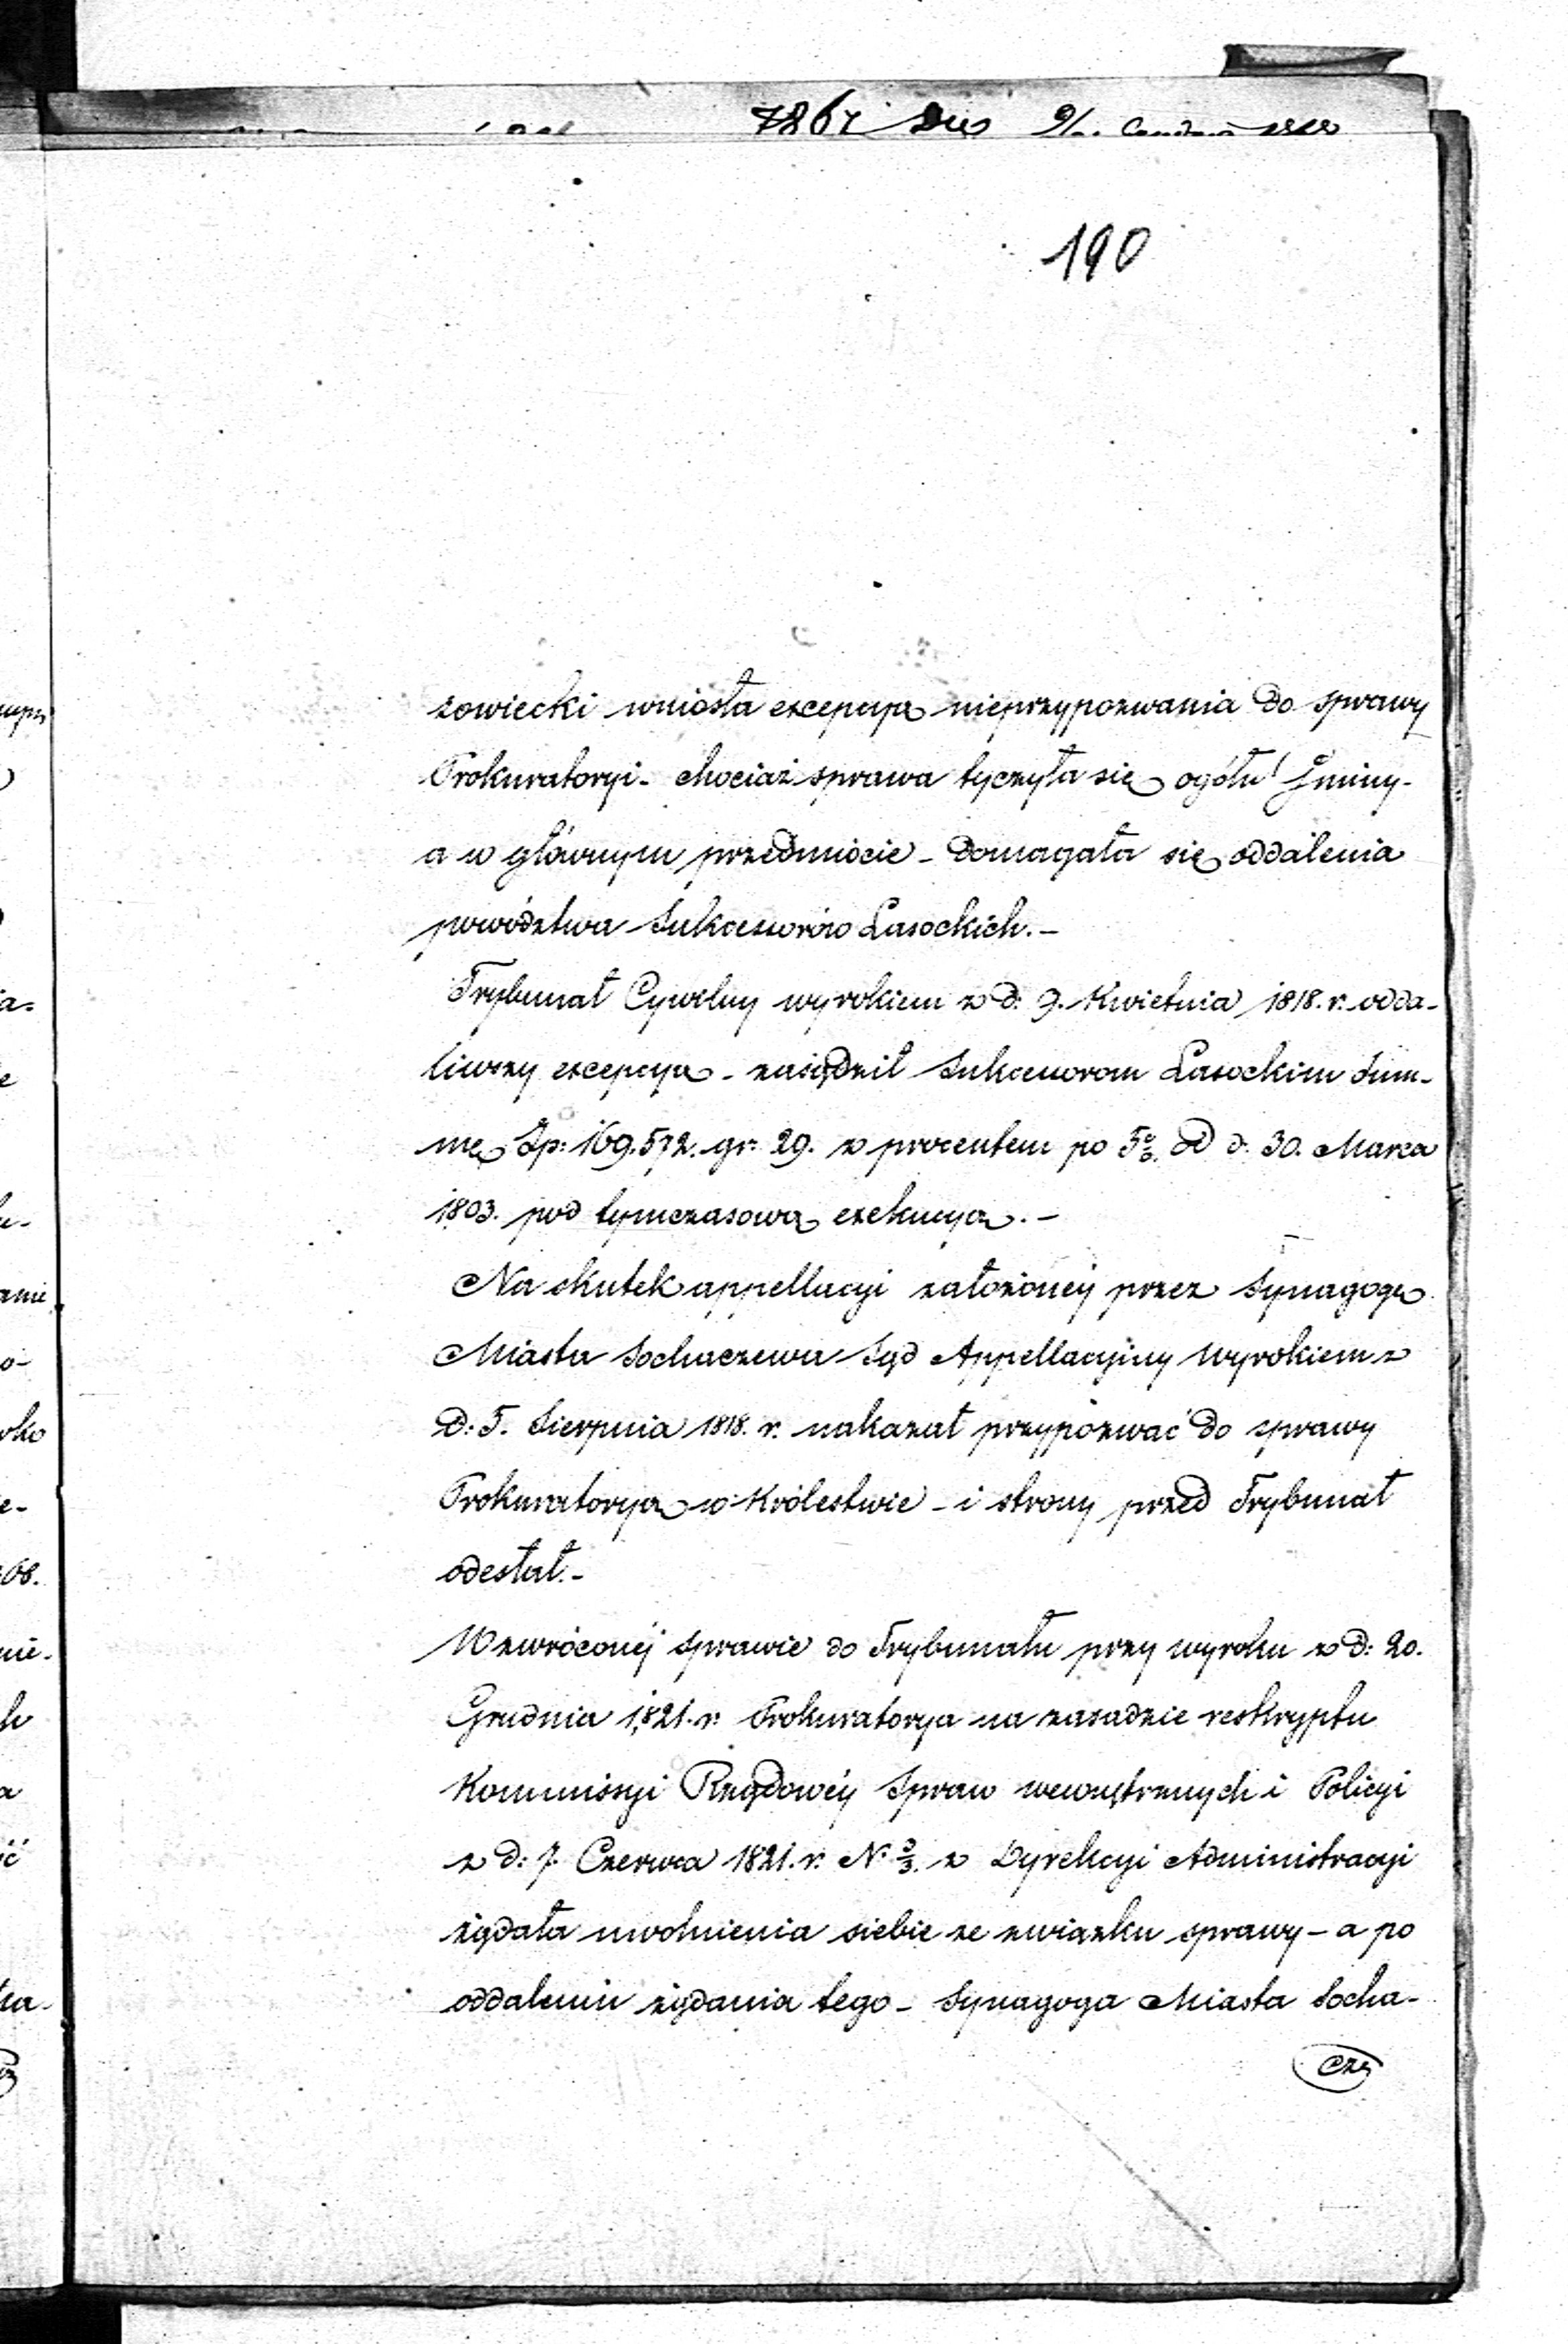 190
zowiecki wniosła excepcyą nieprzypozwania do sprawy
Prokuratoryi - chociaż sprawa tyczyła się ogółu Gminy -
a w głównym przedmiocie - domagała się oddalenia
powództwa Sukcessorów Lasockich. -
Trybunał Cywilny wyrokiem z d: 9. Kwietnia 1818. r. odda-
liwszy excepcyą - zasądził Sukcessorom Lasockim Sum-
mę Zp: 169.572. gr: 29. z procentem po 5%. od d. 30. Marca
1803. pod tymczasową exekucyą. -
Na skutek appellacyi założonéj przez Synagogę
Miasta Sochaczewa Sąd Appellacyiny Wyrokiem z
d: 5. Sierpnia 1818. r. nakazał przypozwać do sprawy
Prokuratoryą w Królestwie - i strony przed Trybunał
odesłał. -
W zwróconéj sprawie do Trybunału przy wyroku z d: 20.
Grudnia 1821. r. Prokuratorya na zasadzie reskryptu
Kommissyi Rządowéy Spraw wewnętrznych i Policyi
z d: 7. Czerwca 1821. r. N. z Dyrekcyi Administracyi
żądała uwolnienia siebie ze związku sprawy - a po
oddaleniu żądania tego - Synagoga Miasta Socha-
cze